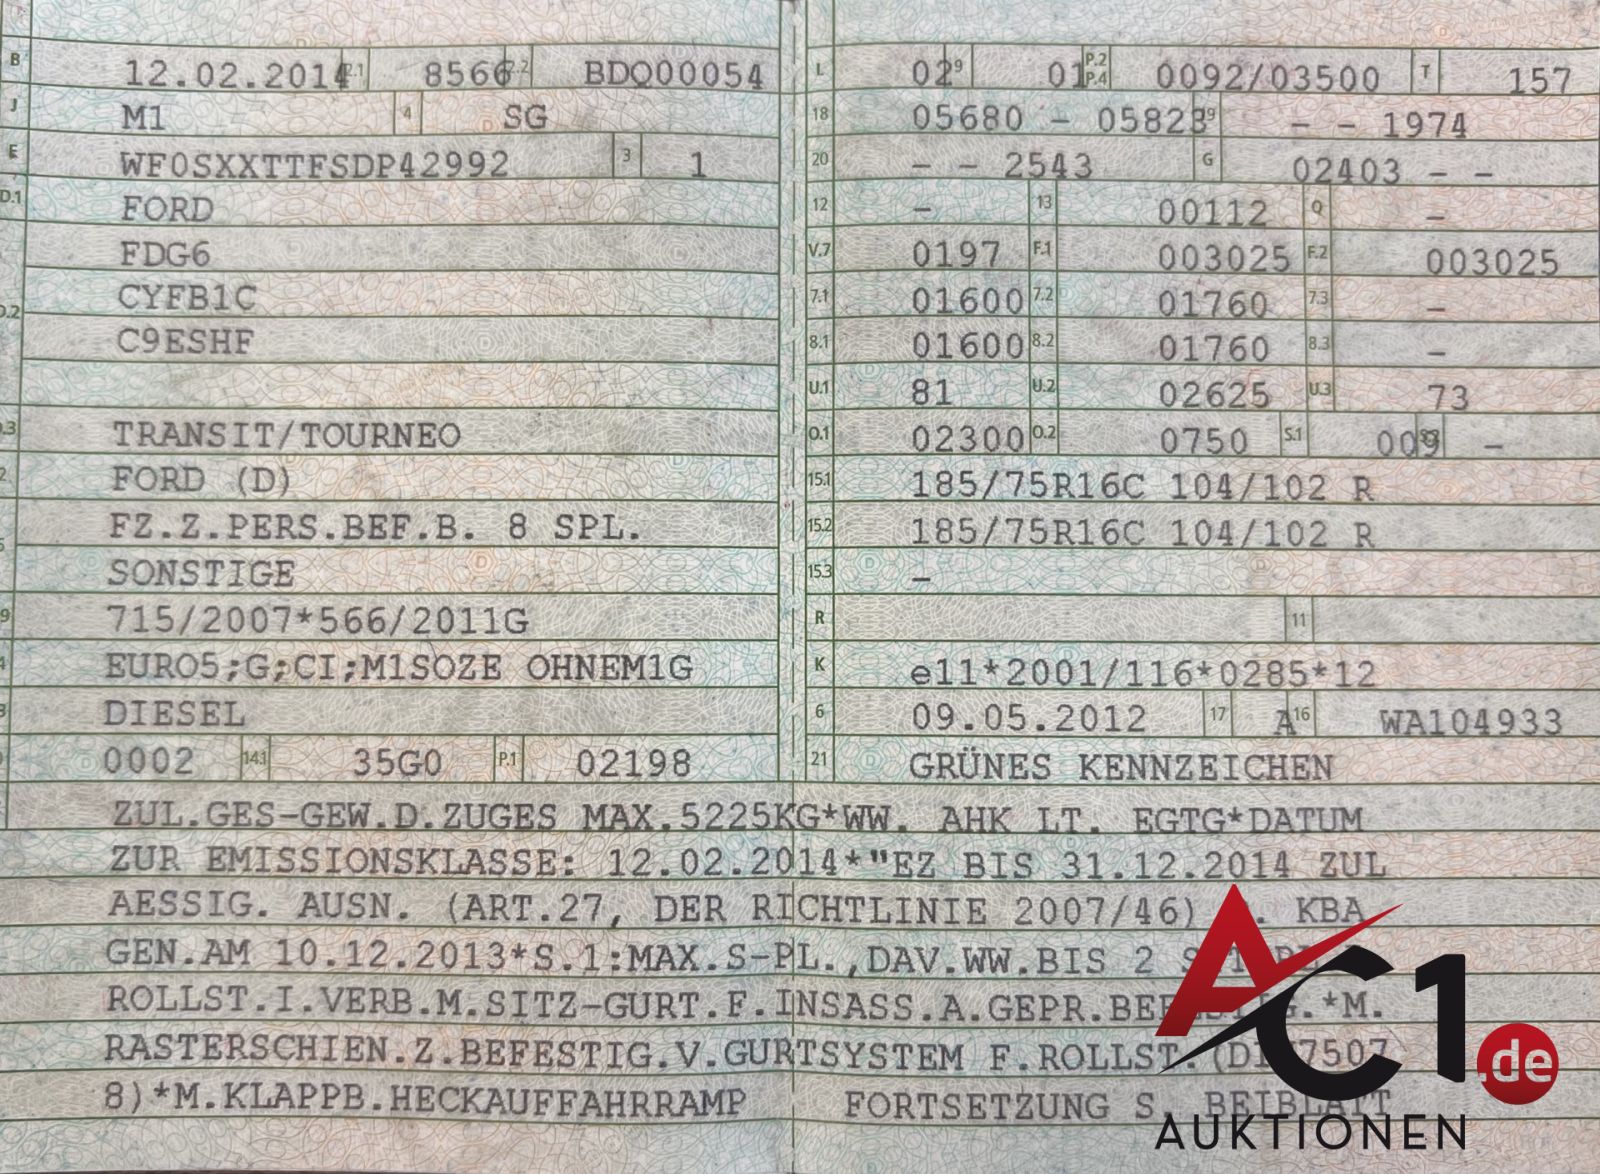 B 12.02.2014 2.1 8566 2.2 BDQ00054
J M1 4 SG
E WF0SXXTTFSDP42992 3 1
D.1 FORD
FDG6
D.2 CYFB1C
C9ESHF
D.3 TRANSIT/TOURNEO
2 FORD (D)
5 FZ.Z.PERS.BEF.B. 8 SPL.
SONSTIGE
9 715/2007*566/2011G
4 EURO5;G;CI;M1SOZE OHNEM1G
3 DIESEL
0002 14.1 35G0 P.1 02198
L 02 9 01 P.2 P.4 0092/03500 T 157
18 05680 - 05823 19 - - 1974
20 - - 2543 G 02403 - -
12 - 13 00112 Q -
V.7 0197 F.1 003025 F.2 003025
7.1 01600 7.2 01760 7.3 -
8.1 01600 8.2 01760 8.3 -
U.1 81 U.2 02625 U.3 73
O.1 02300 O.2 0750 S.1 009 S.2 -
15.1 185/75R16C 104/102 R
15.2 185/75R16C 104/102 R
15.3 -
R 11
K e11*2001/116*0285*12
6 09.05.2012 17 A 16 WA104933
21 GRÜNES KENNZEICHEN
ZUL.GES-GEW.D.ZUGES MAX.5225KG*WW. AHK LT. EGTG*DATUM
ZUR EMISSIONSKLASSE: 12.02.2014*"EZ BIS 31.12.2014 ZUL
AESSIG. AUSN. (ART.27, DER RICHTLINIE 2007/46) KBA
GEN.AM 10.12.2013*S.1:MAX.S-PL.,DAV.WW.BIS 2
ROLLST.I.VERB.M.SITZ-GURT.F.INSASS.A.GEPR.BEFESTIG.*M.
RASTERSCHIEN.Z.BEFESTIG.V.GURTSYSTEM F.ROLLST.(DIN7507
8)*M.KLAPPB.HECKAUFFAHRRAMP FORTSETZUNG S. BEIBLATT
AC1.de
AUKTIONEN